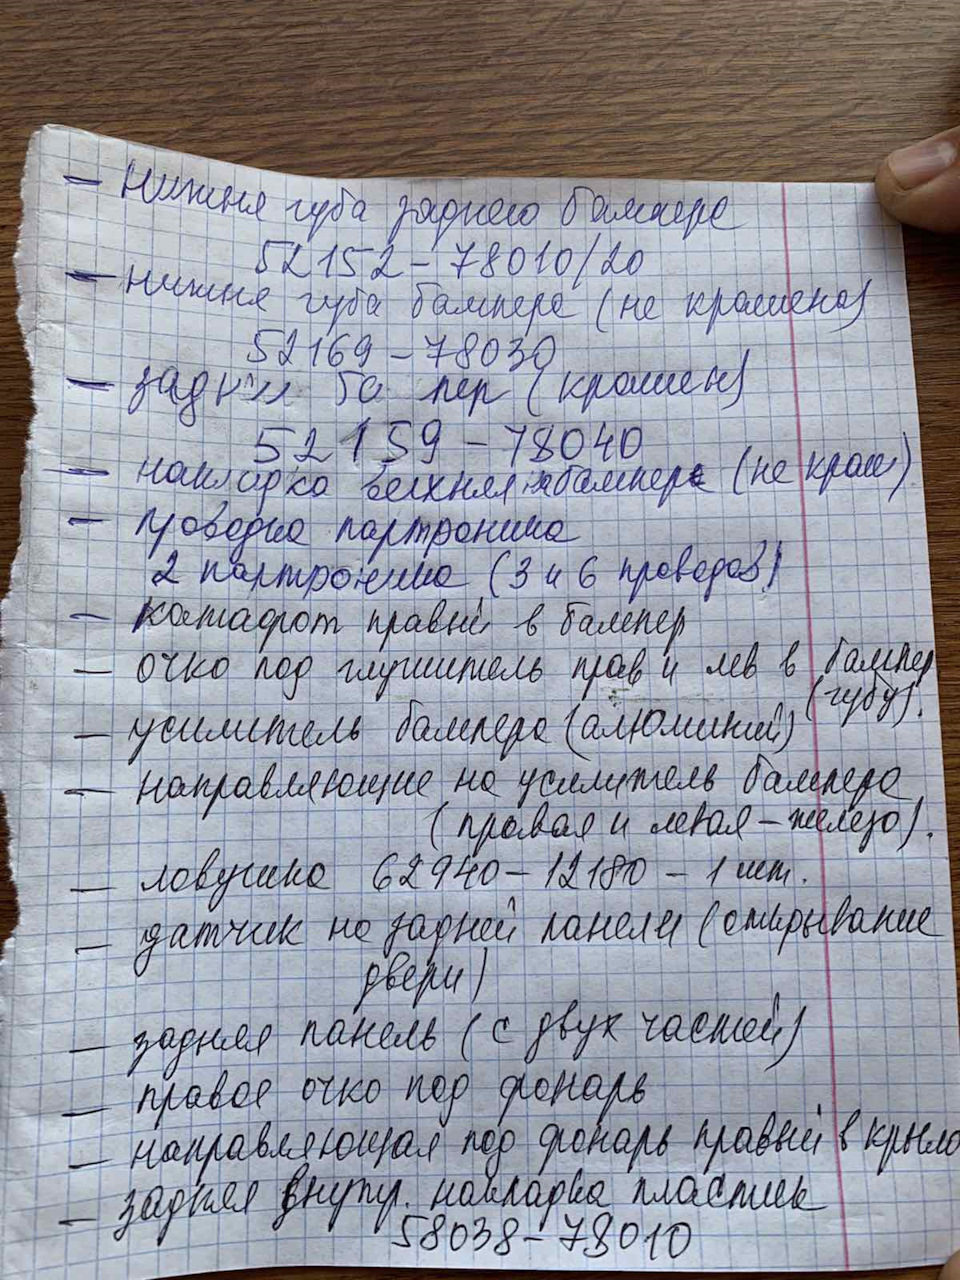 — нижня губа заднего бампера
52152-78010/20
— нижня губа бампера (не крашена)
52169-78030
— задни ба пер (крашен)
52159-78040
— накладка верхняя бампера (не краш)
— проводка партроника
2 партроника (3 и 6 проводов)
— катафот правый в бампер
— очко под глушитель прав и лев в бампер
(губу).
— усилитель бампера (алюминий)
— направляющие на усилитель бампера
(правая и левая - железо).
— ловушка 62940-12180 - 1 шт.
— датчик на задней панели (открывание
двери)
— задняя панель (с двух частей)
— правое очко под фонарь
— направляющая под фонарь правый в крыло
— задняя внутр. накладка пластик
58038-78010